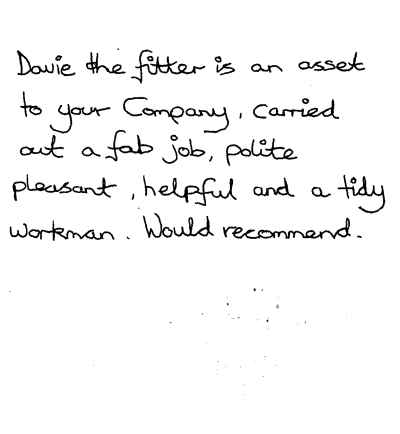 Davie the fitter is an asset
to your Company, carried
out a fab job, polite
pleasant, helpful and a tidy
workman. Would recommend.